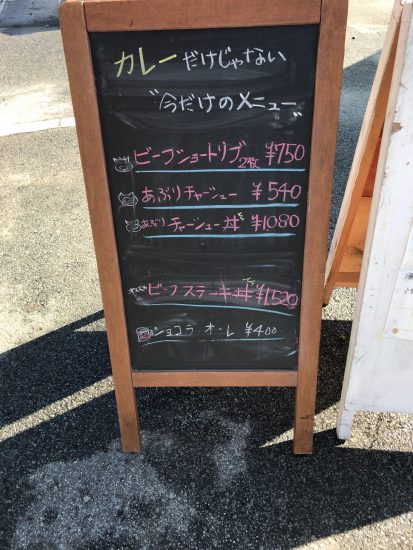 カレーだけじゃない
"今だけのメニュー"
ビーフショートリブ2枚 ¥750
あぶりチャージュー ¥540
あぶりチャージュー丼 ¥1080
ビーフステーキ丼 ¥1,520
ショコラ・オ・レ ¥400